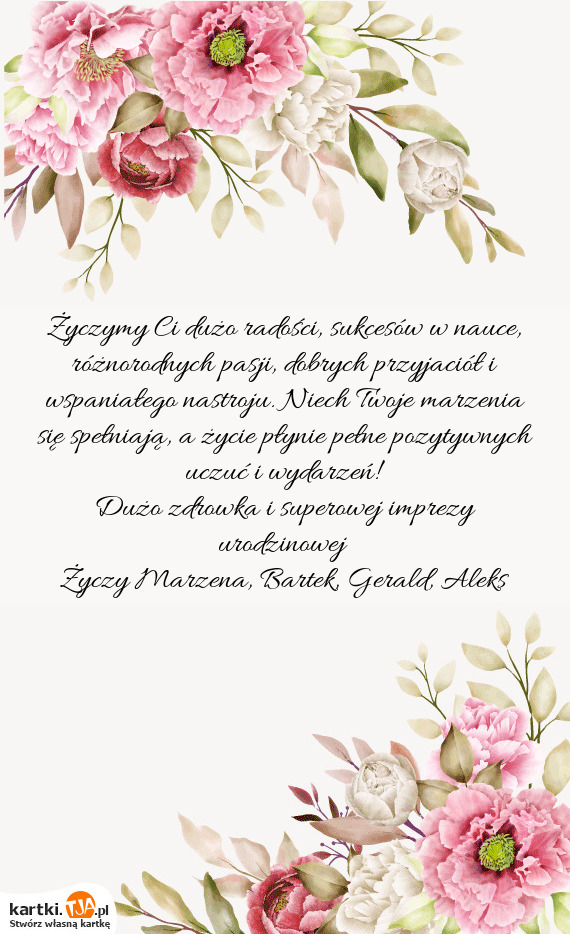 Życzymy Ci dużo radości, sukcesów w nauce,
różnorodnych pasji, dobrych przyjaciół i
wspaniałego nastroju. Niech Twoje marzenia
się spełniają, a życie płynie pełne pozytywnych
uczuć i wydarzeń!
Dużo zdrowka i superowej imprezy
urodzinowej
Życzy Marzena, Bartek, Gerald, Aleks
kartki.TJA.pl
Stwórz własną kartkę